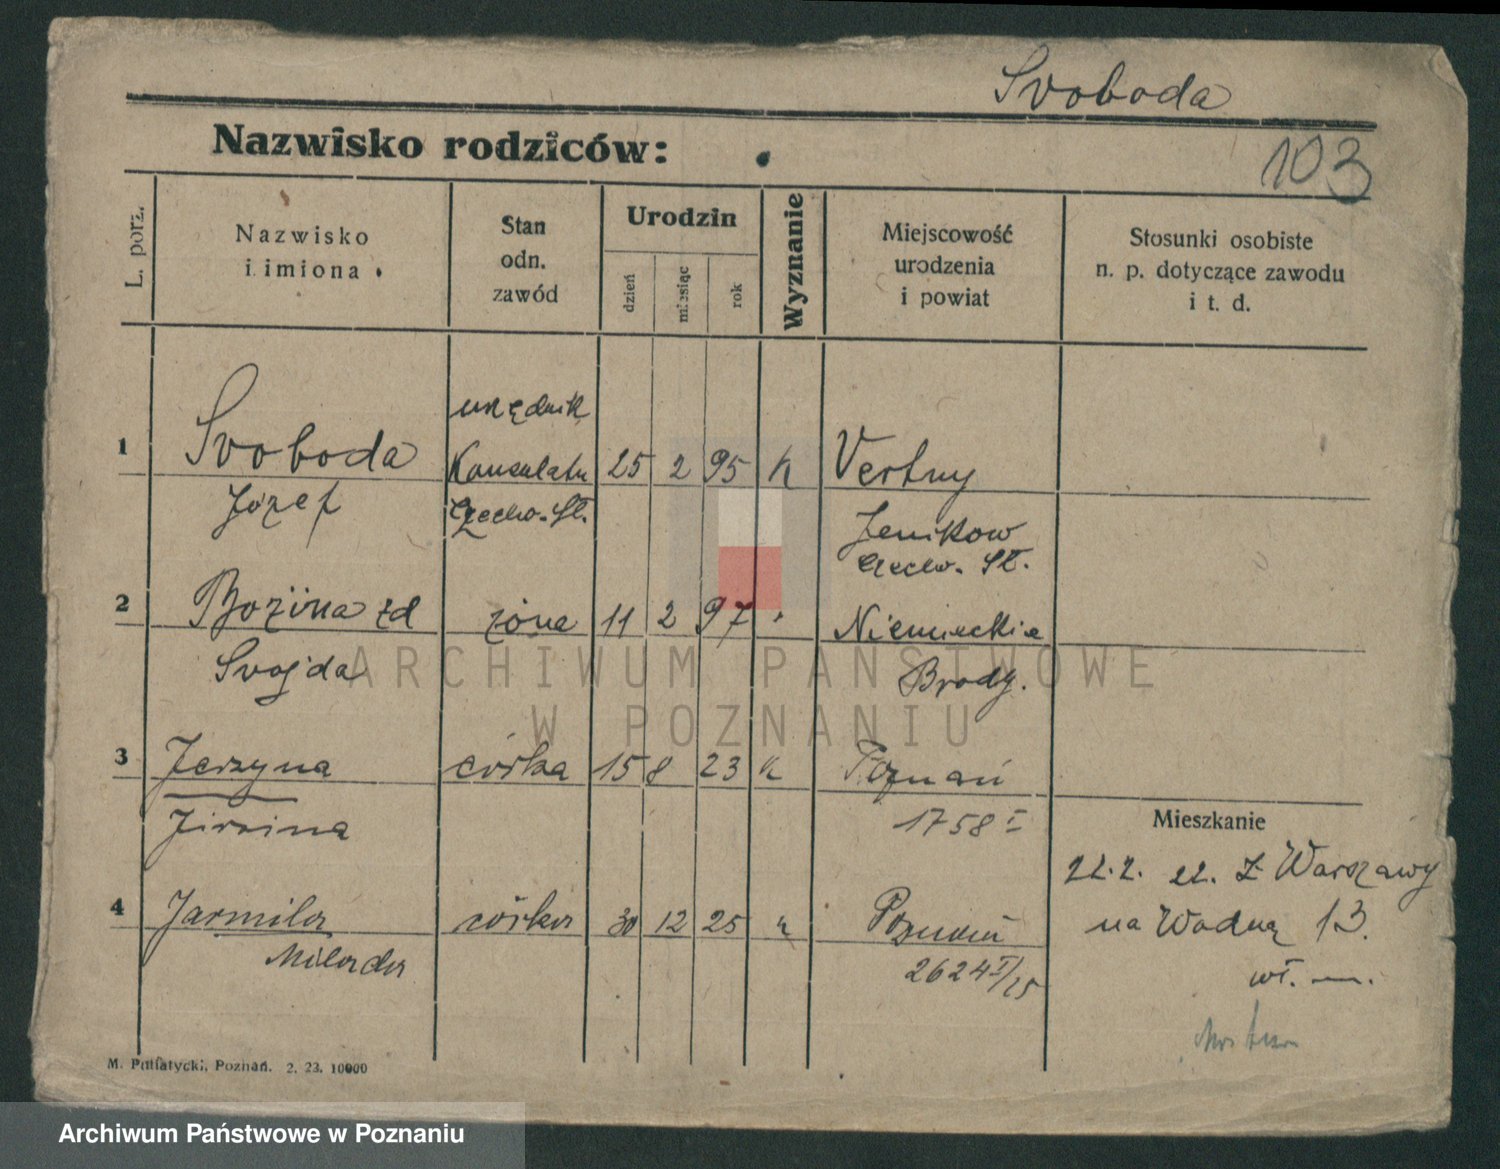 Svoboda
Nazwisko rodziców:
103
L. porz.
Nazwisko
i imiona
Stan
odn.
zawód
Urodzin
dzień
miesiąc
rok
Wyznanie
Miejscowość
urodzenia
i powiat
Stosunki osobiste
n. p. dotyczące zawodu
i t. d.
urzędnik
1 Svoboda Konsulatu 25 2 95 k Vertny
Józef Czecho. Sł. Jenikow
Czecho. Sł.
2 Bożina zd żona 11 2 97 " Niemieckie
Svojda Brody.
3 Jerzyna córka 15 8 23 k Poznań
Jirzina 1758 I
Mieszkanie
22.2. 22. z Warszawy
4 Jarmila córka 30 12 25 " Poznań
na Wodną 13.
Milada 2624 I/25
wł. m.
M. Putiatycki, Poznań. 2. 23. 10000
ARCHIWUM PAŃSTWOWE
W POZNANIU
Archiwum Państwowe w Poznaniu